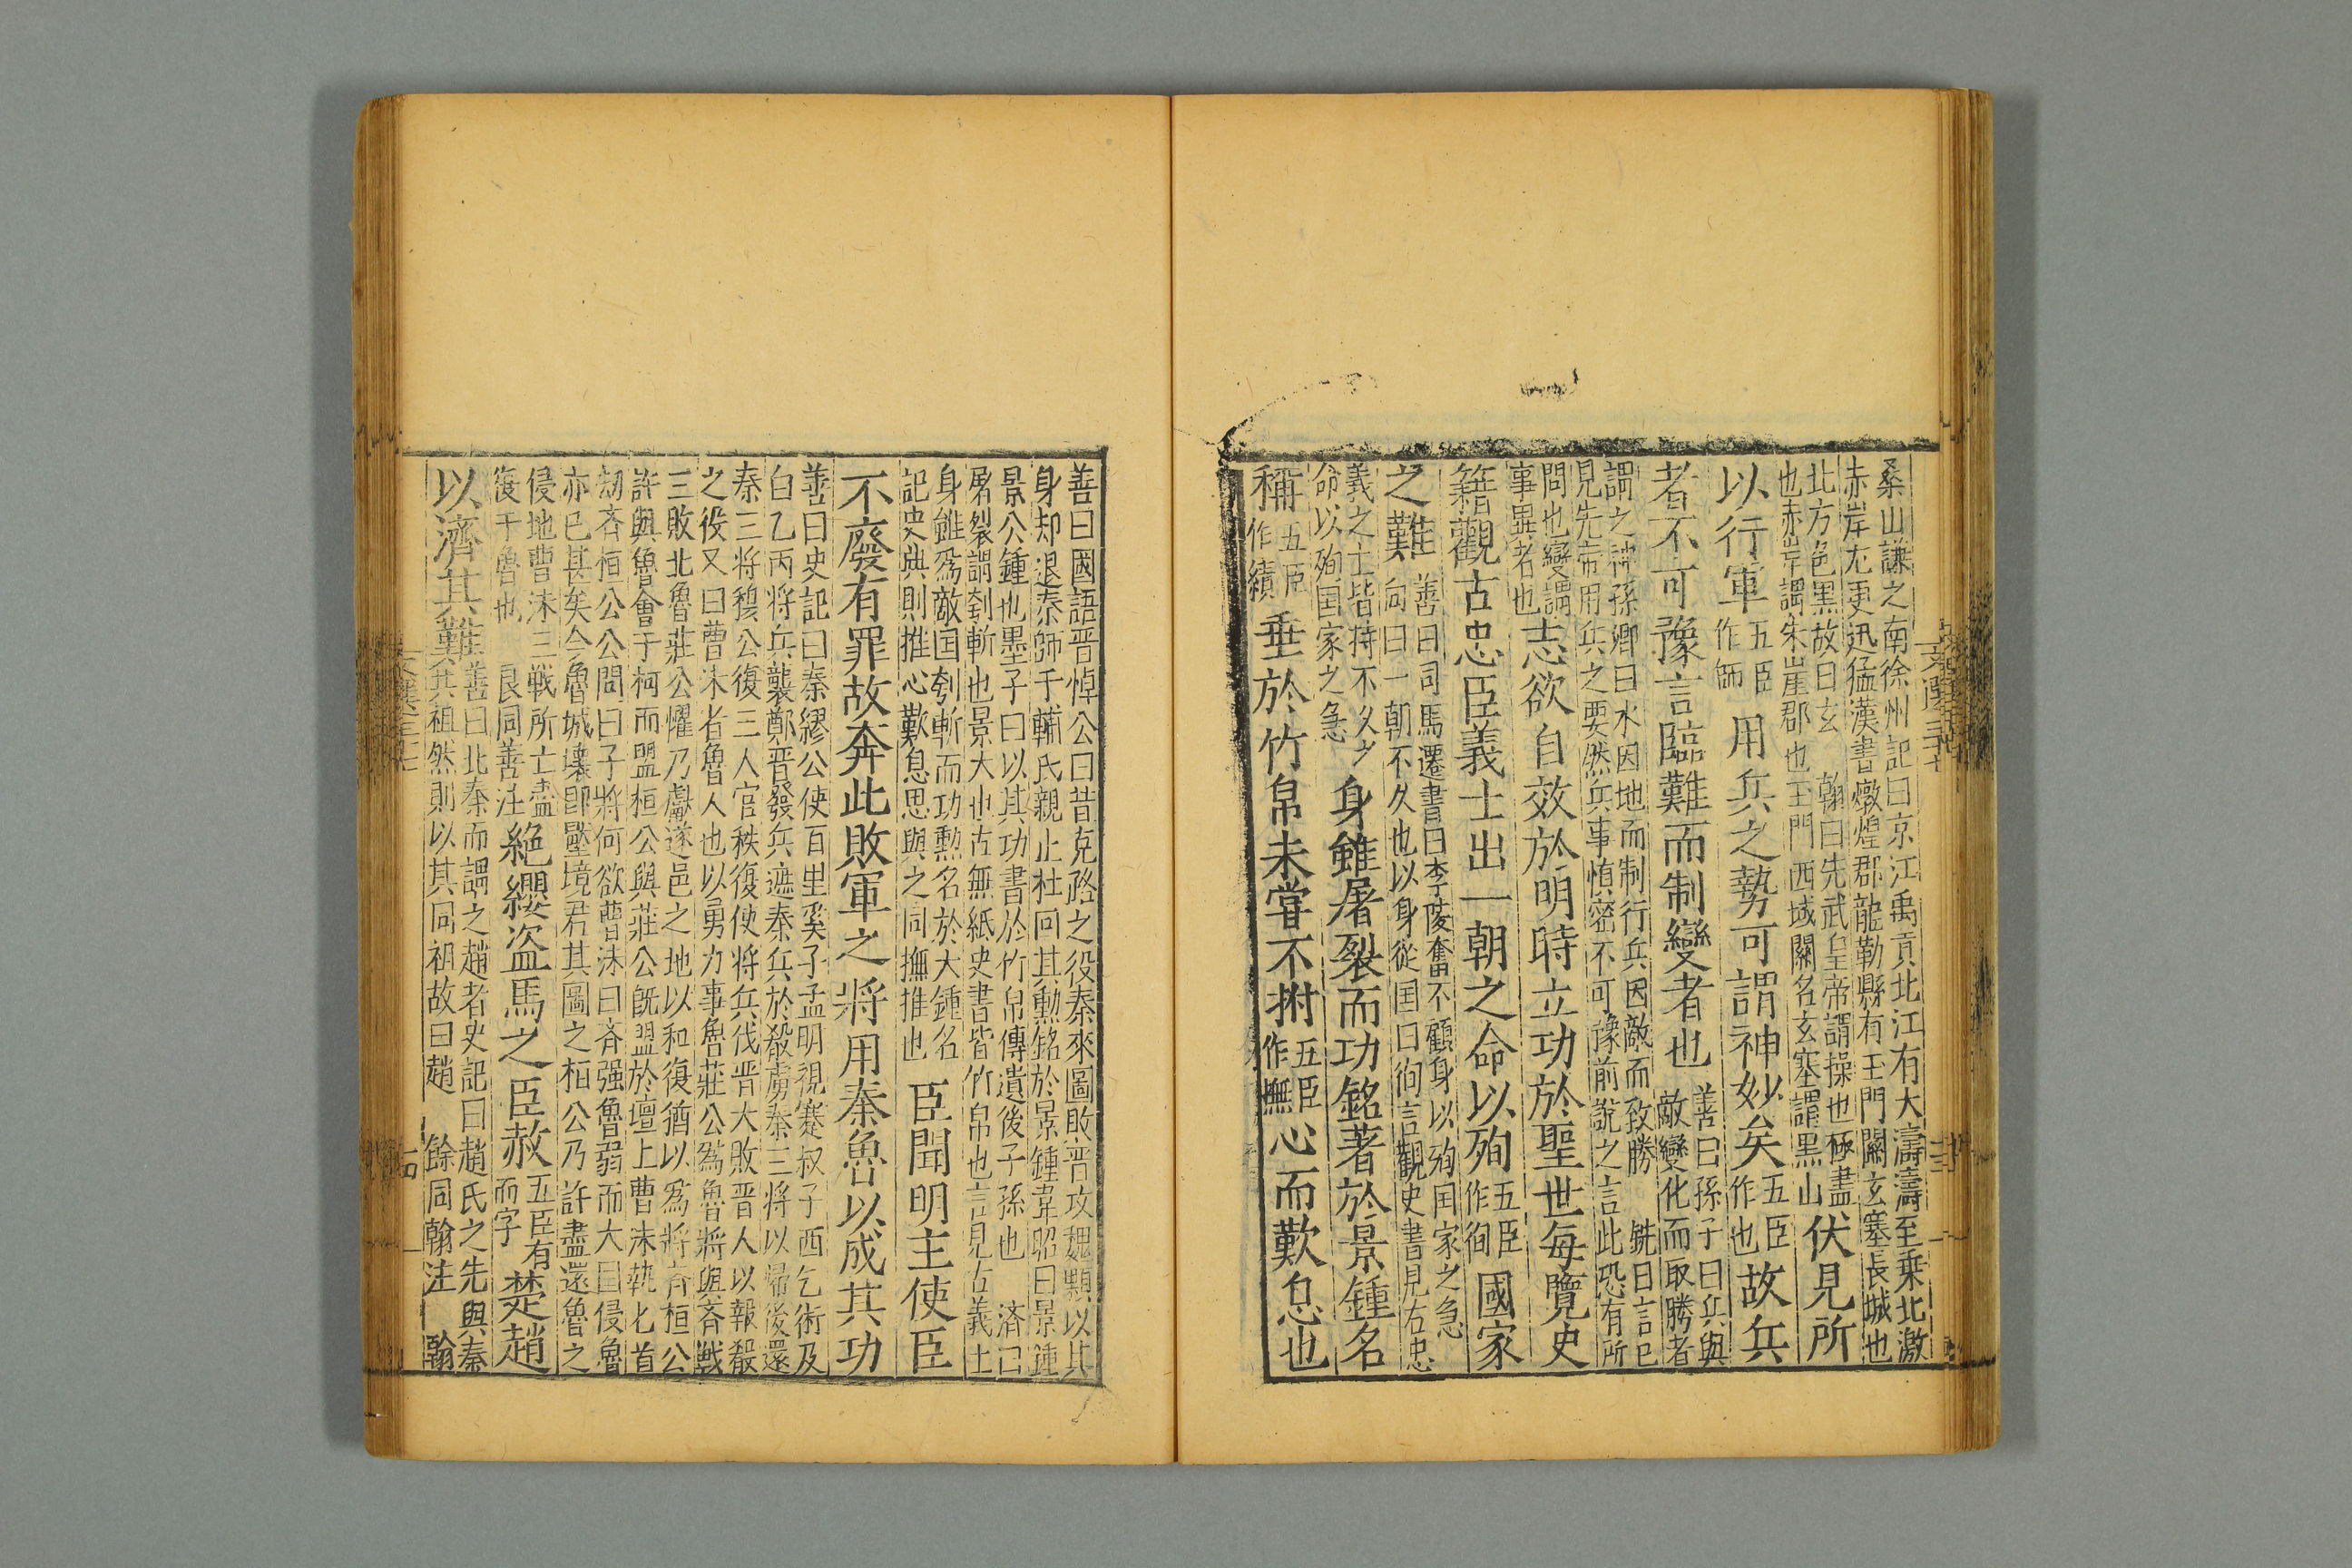 桑山謙之南徐州記曰京江禹貢北江有大濤濤至乗北激
赤岸尤更迅猛漢書燉煌郡龍勒縣有王門關玄塞長城也
北方色黒故曰玄 翰曰先武皇帝謂操也極盡
也赤岸謂朱崖郡也王門西域關名玄塞謂黒山
伏見所
以行軍
五臣
作師
用兵之勢可謂神妙矣
五臣
作也
故兵
者不可豫言臨難而制變者也
善曰孫子曰兵與
敵變化而取勝者
謂之神孫卿曰水因地而制行兵因敵而致勝 銑曰言已
見先帝用兵之要然兵事愼密不可豫前說之言此恐有所
問也變謂
事異者也
志欲自效於明時立功於聖世每覽史
籍觀古忠臣義士出一朝之命以殉
五臣
作徇
國家
之難
善曰司馬遷書曰李陵奮不顧身以殉囯家之急
向曰一朝不久也以身從囯曰徇言觀史書見右忠
義之士皆恃不久夕
命以殉国家之急
身雖屠裂而功銘著於景鍾名
稱
五臣
作績
垂於竹帛未甞不拊
五臣
作撫
心而歎息也
善曰國語晉悼公曰昔克潞之役秦來圖敗晉攻魏顆以其
身却退秦師于輔氏親止杜回其勳銘於景鍾韋昭曰景鍾
景公鍾也墨子曰以其功書於竹帛傳遺後子孫也 濟曰
屠裂謂刳斬也景大也古無紙史書皆竹帛也言見古義士
身雖爲敵囯刳斬而功勳名於大鍾名
記史典則推心歎息思與之同撫推也
臣聞明主使臣
不廢有罪故奔此敗軍之將用秦魯以成其功
善曰史記曰秦繆公使百里奚子孟明視蹇叔子西乞術及
白乙丙將兵襲鄭晉發兵遮秦兵於殽虜秦三將以歸後還
秦三將穆公復三人官秩復使將兵伐晉大敗晉人以報殽
之役又曰曹沬者魯人也以勇力事魯莊公爲魯將與斉戰
三敗北魯莊公懼乃獻遂邑之地以和復猶以爲將斉桓公
許與魯會于柯而盟桓公與莊公旣盟於壇上曹沬執匕首
劫斉桓公公問曰子將何欲曹沬曰斉强魯弱而大囯侵魯
亦已甚矣今魯城壞即壓境君其圖之桓公乃許盡還魯之
侵地曹沬三戦所亡盡
復于魯也 良同善注
絶纓盗馬之臣赦
五臣有
而字
楚趙
以濟其難
善曰北秦而謂之趙者史記曰趙氏之先與秦
共祖然則以其同祖故曰趙 餘同翰注 翰